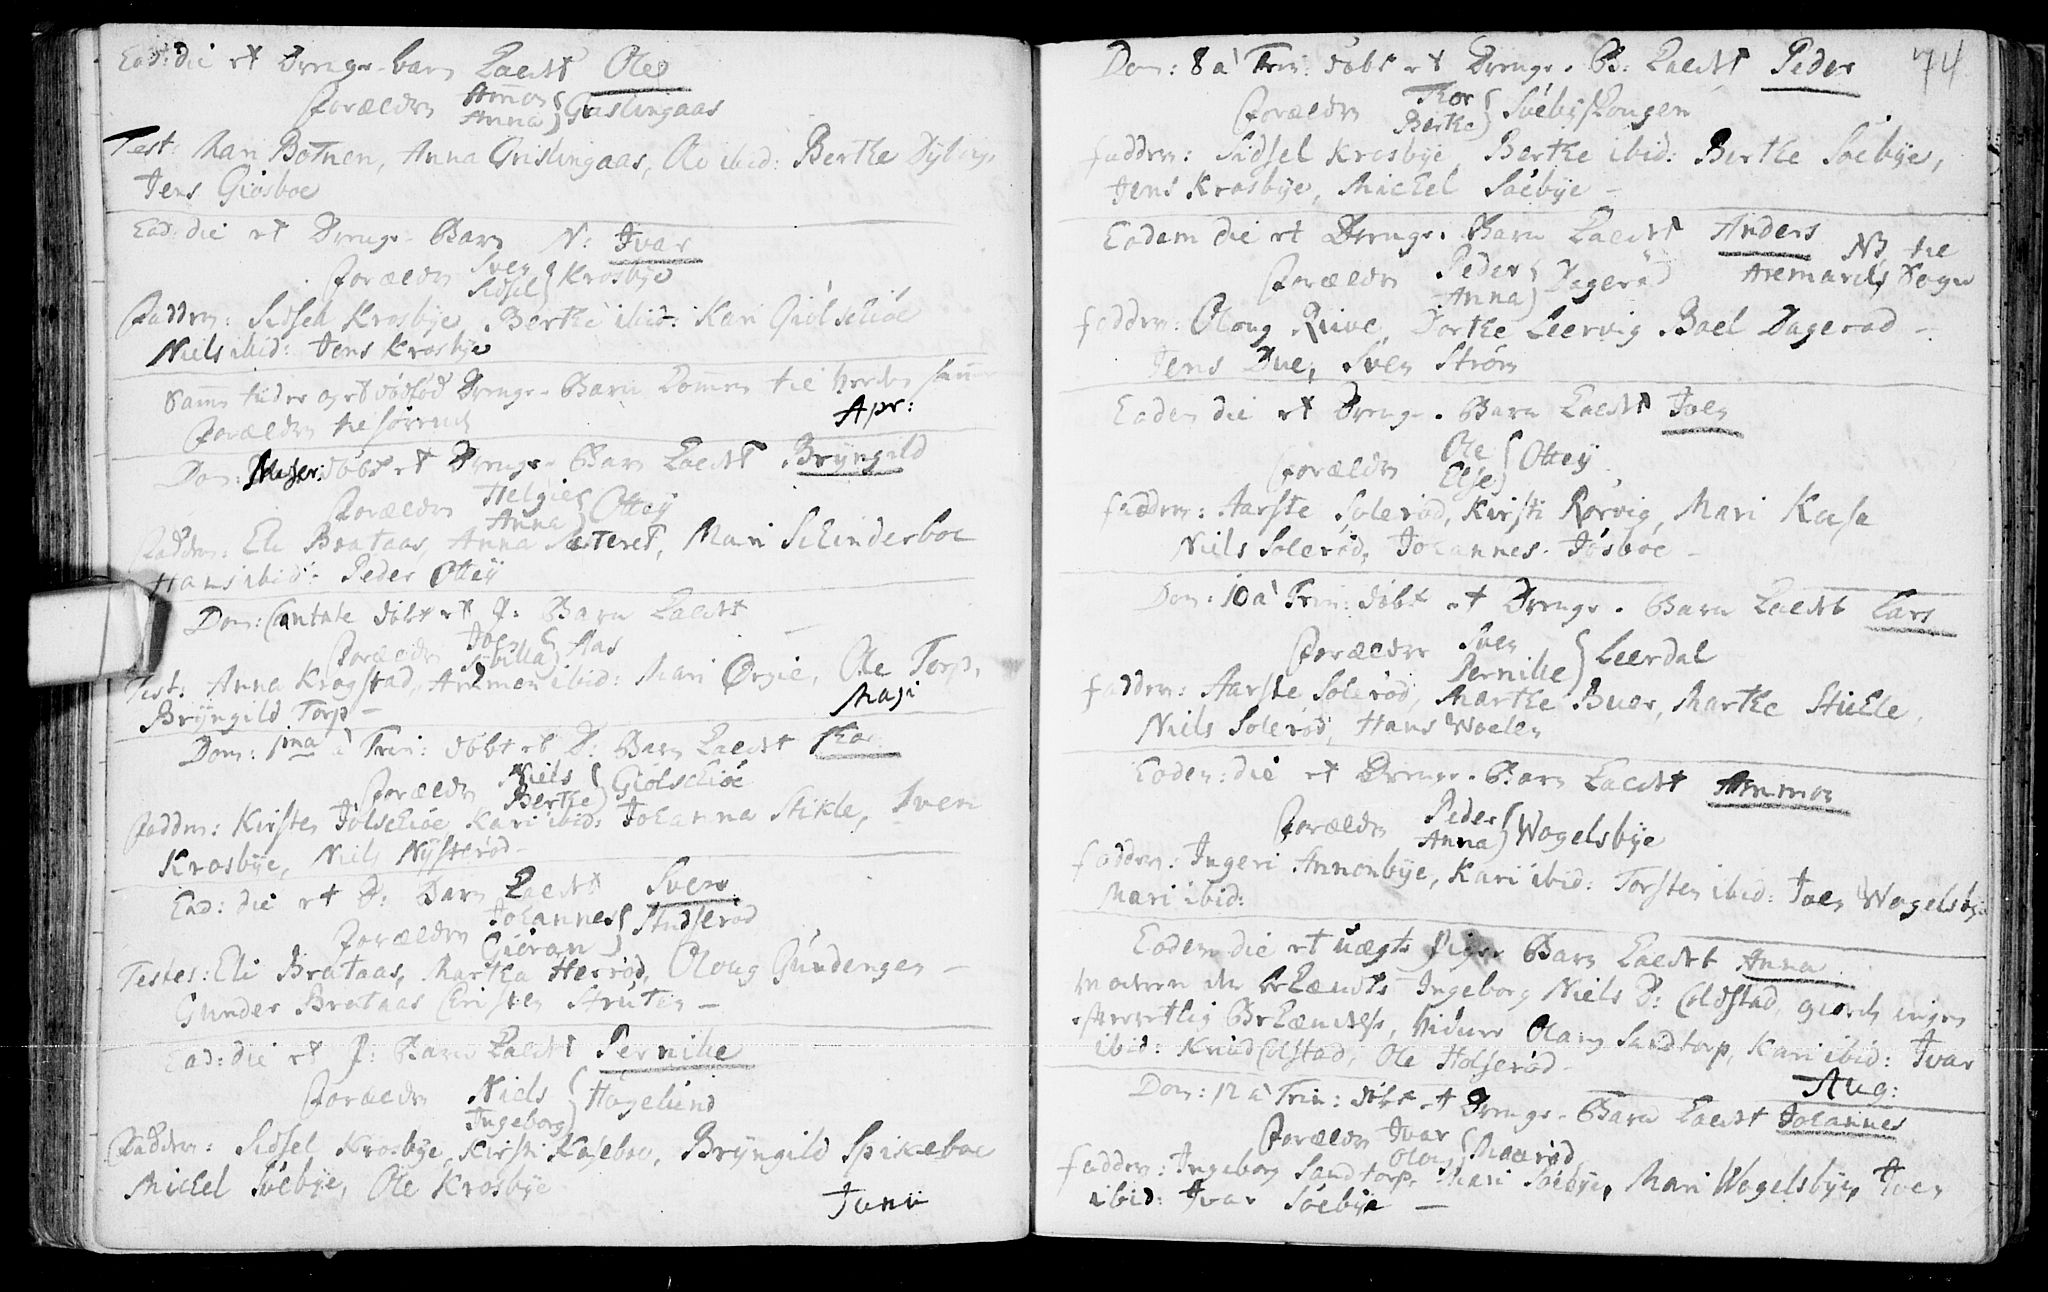 Ead: die et Drenge-barn kaldet Ole
Forældre Amon Anna } Grislingaas
Test: Mari Botnen, Anna Grislingaas, Ole ibid: Berthe Dybeng
Jens Giosboe
Ead: die et Drenge-Barn N: Ivar
Forældre Sven Sidsel } Krosbye
Faddere: Sidsel Krosbye, Berthe ibid: Kari Giölschiöe
Niels ibid: Jens Krosbye
Samme tider og et dödföd Drenge-Barn kommen til
Forældre
Apr:
Dom: Miser: döbt et Drenge-Barn kaldet Bryngild
Forældre Helgie Anna } Ottey
Fadder: Eli Brataas, Anna Sæteret, Mari Schinderboe
Hans ibid: Peder Ottey
Dom: Cantate döbt et P: Barn kaldet —
Forældre Joen Sybilla } Aas
Test: Anna Krogstad, Ammon ibid: Mari Ørgie, Ole Torp,
Bryngild Torp —
Maji
Dom: 1ma a Trin: döbt et D: Barn kaldet Thor
Forældre Niels Berthe } Giölschiöe
Fadder: Kirsten Jölschiöe Kari ibid: Johanna Stikle, Sven
Krosbye, Niels Nysteröd —
Ead: die et D: Barn kaldet Sven
Forældre Johannes Giöran } Studseröd
Testes: Eli Brataas, Martha Herröd, Oloug Gundengen —
Gunder Brataas Christen Struten —
Ead: die et P: Barn kaldet Pernille
Forældre Niels Ingeborg } Högelund
Fadder: Sidsel Krosbye, Kirsti Kaseboe, Bryngild Spikeboe
Michel Söebye, Ole Krosbye
Junii
74
Dom: 8 a Trin: döbt et Drenge-B: kaldet Peder
Forældre Thor Berthe } Söebyskougen
fadder: Sidsel Krosbye, Berthe ibid: Berthe Söebye,
Jens Krosbye, Michel Söebye —
Eadem die et Drenge-Barn kaldet Anders
NB til
Forældre Peder Anna } Dageröd
Aremarchs Sogn
fadder: Oloug Riive, Dorthe Leervig Boel Dageröd —
Jens Due, Sven Ström
Eadem die et Drenge-Barn kaldet Joen
Forældre Ole Else } Ottey
fadder: Aarste Soleröd, Kirsti Rörvig, Mari Kase
Niels Soleröd, Johannes Jösböe —
Dom: 10 a Trin: döbt et Drenge-Barn kaldet Lars
Forældre Sven Pernille } Leerdal
fadder: Aarste Soleröd, Marthe Buer, Marthe Stichle,
Niels Soleröd, Hans Woelen
Eadem: die et Drenge-Barn kaldet Ammon
Forældre Peder Anna } Wogelsbye
fadder: Ingeri Annonbye, Kari ibid: Torsten ibid: Joen Wogelsbye
Mari ibid:
Eadem die et uægte Pige Barn kaldet Anna
Moderen den bekændte Ingeborg Niels D: Colstad, giorde ingen
Bekændelse, Vidner Oloug Sandtorp, Kari ibid: Ivar
ibid: Knud Colstad, Ole Holseröd —
Aug:
Dom: 12 a Trin: döbt et Drenge-Barn kaldet Johannes
Forældre Ivar Oloug } Maaröd
fadder: Ingeborg Sandtorp, Mari Söebye, Mari Wogelsbye, Joen
ibid: Ivar Söebye —